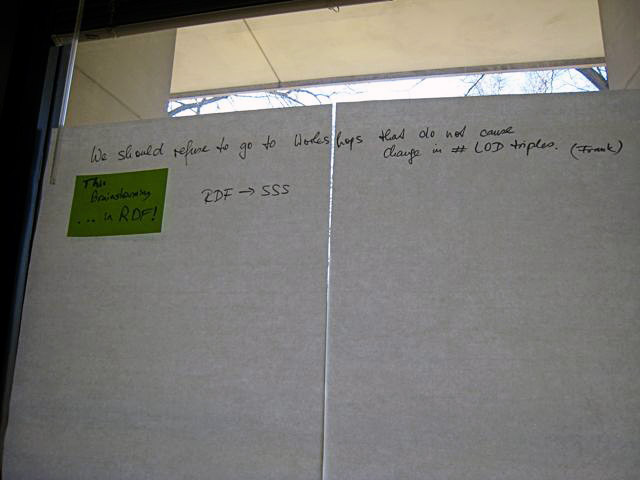 We should refuse to go to Workshops that do not cause
change in # LOD triples. (Frank)
This
Brainstorming
... in RDF!
RDF → SSS